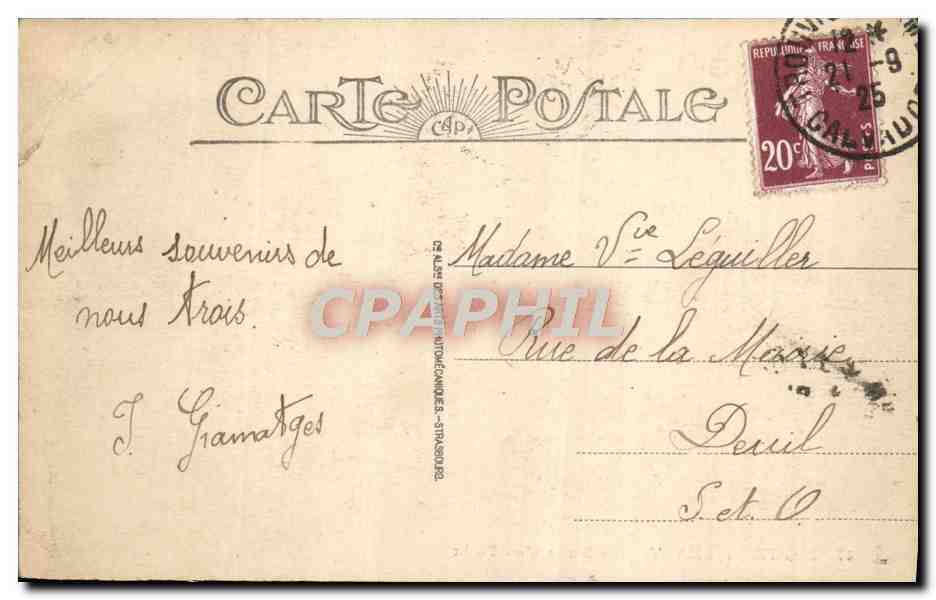 CARTE POSTALE
CAP
REPUBLIQUE FRANÇAISE
20c
POSTES
12 *
21 -9
25
CALVADOS
Meilleurs souvenirs de
nous trois.
J. Gramatges
Cie ALSne DES ARTS PHOTOMÉCANIQUES.-STRASBOURG.
CPAPHIL
Madame Vve Léguiller
Rue de la Mairie
Deuil
S. et. O.